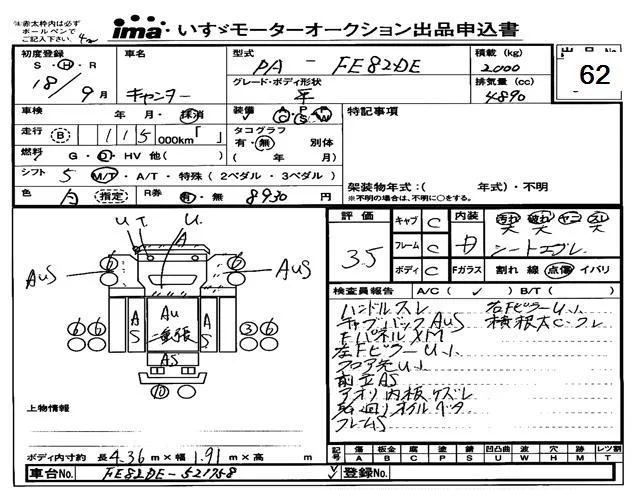 ※赤太枠内は必ず
ボールペンで
ご記入下さい。
ima いすゞモーターオークション出品申込書
初度登録
S・H・R
18/9月
車名
キャンター
型式
PA - FE82DE
グレード・ボディ形状
平
積載(kg)
2000
排気量(cc)
4890
62
車検 年・月・抹消
装備 A P
C S W
特記事項
走行 B 115 000km「 」
タコグラフ
有・無 別体
( 年 月)
燃料 G・D・HV 他( )
シフト 5 M/T・A/T・特殊(2ペダル・3ペダル)
架装物年式:( 年式)・不明
※不明の場合は、不明に○をする。
色 白 指定 R券 有・無 8930 円
評価
3.5
キャブ C
フレーム C
ボディ C
内装 D
汚れ 破れ ヤニ スレ
シートエグレ
Fガラス 割れ 線 点傷 イバリ
検査員報告 A/C( ✓ ) B/T( )
ハンドルスレ 右FピラーU小
キャブバックAUS 横根太C・フレ
FパネルXM
左FピラーU小
フロア先U小
前立AS
アオリ内板ケズレ
フレームS
U T. U.
A
6 6
AUS AUS
6 6 A S Au 二重張 A S 3 6
AS
10
上物情報
ボディ内寸約 長4.36m×幅1.91m×高 m
記号 傷 板金 腐 塗 錆 凹凸曲 波 穴 跡 レツ割
A B C P S U W H M T
車台No. FE82DE-521758
登録No.